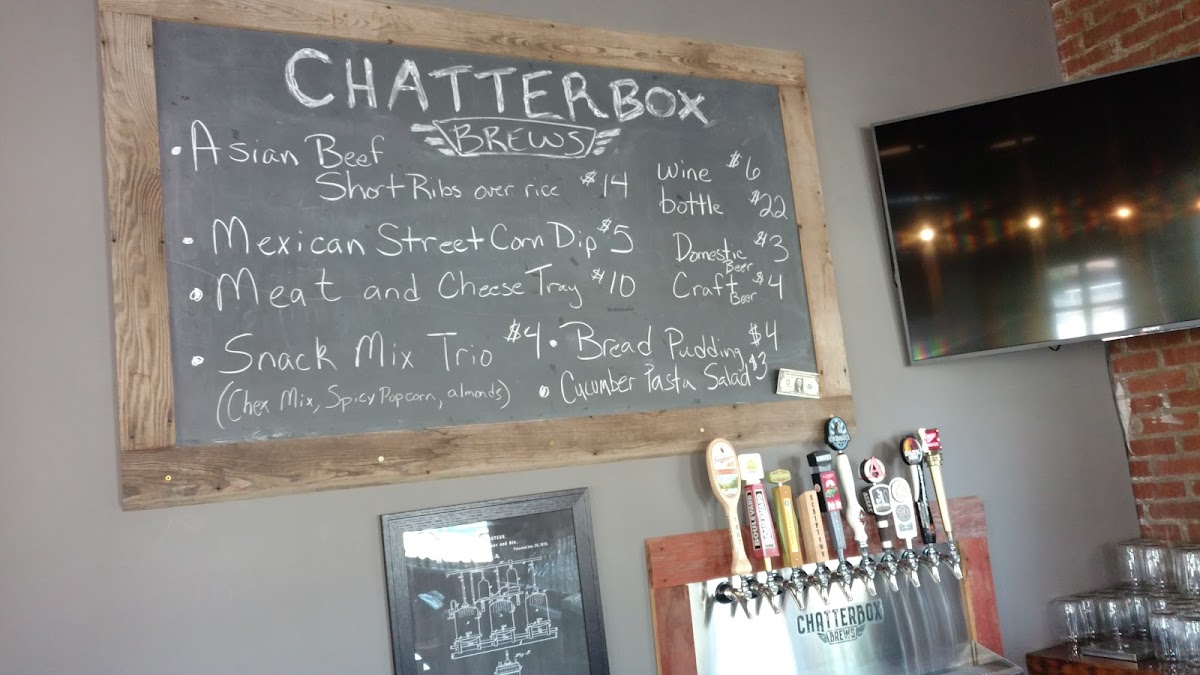 CHATTERBOX
BREWS
• Asian Beef
Short Ribs over rice $14
• Mexican Street Corn Dip $5
• Meat and Cheese Tray $10
• Snack Mix Trio $4
(Chex Mix, Spicy Popcorn, almonds)
• Bread Pudding $4
• Cucumber Pasta Salad $3
Wine $6
bottle $22
Domestic Beer $3
Craft Beer $4
SONY
BOULEVARD
CHATTERBOX
BREWS